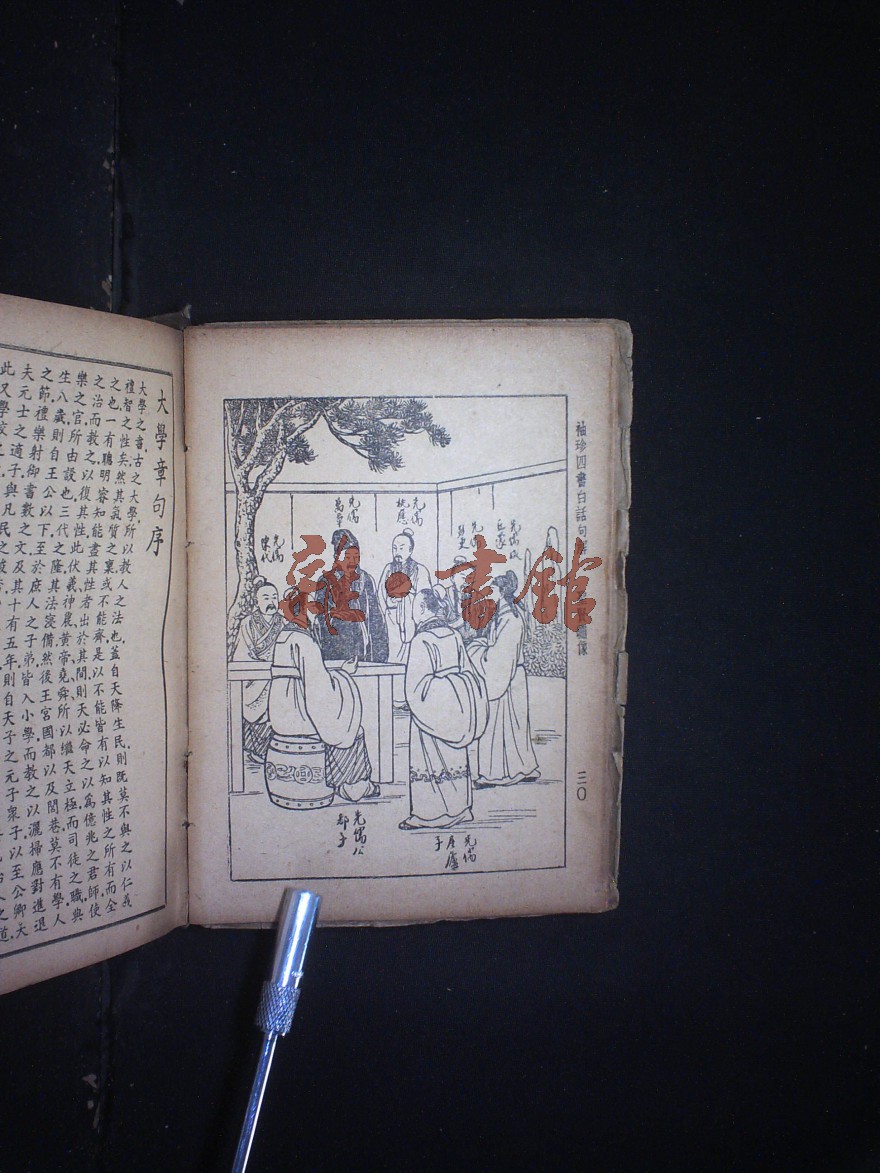 袖珍四書白話句
像
三〇
先儒公
都子
先儒
屋廬
子
先儒
萬章
先儒
陳代
先儒
桃應
先儒咸
丘蒙
先儒
雜·書館
大學章句序
大學之書、古之大學、所以教人之法也、蓋自天降生民、則既莫不與之以仁義
禮智之性矣、然其氣質之稟、或不能齊、是以不能皆有以知其性之所有而全
之也、一有聰明睿知、能盡其性者、出於其間、則天必命之以為億兆之君師、使
之治而教之、以復其性、此伏羲、神農、黃帝、堯、舜、所以繼天立極、而司徒之職、典
樂之官、所由設也、三代之隆、其法寖備、然後王宮國都、以及閭巷、莫不有學、人
生八歲、則自王公以下、至於庶人之子弟、皆入小學、而教之以灑掃應對進退
之節、禮樂射御書數之文、及其十有五年、則自天子之元子眾子、以至公卿大
夫元士之適子、與凡民之